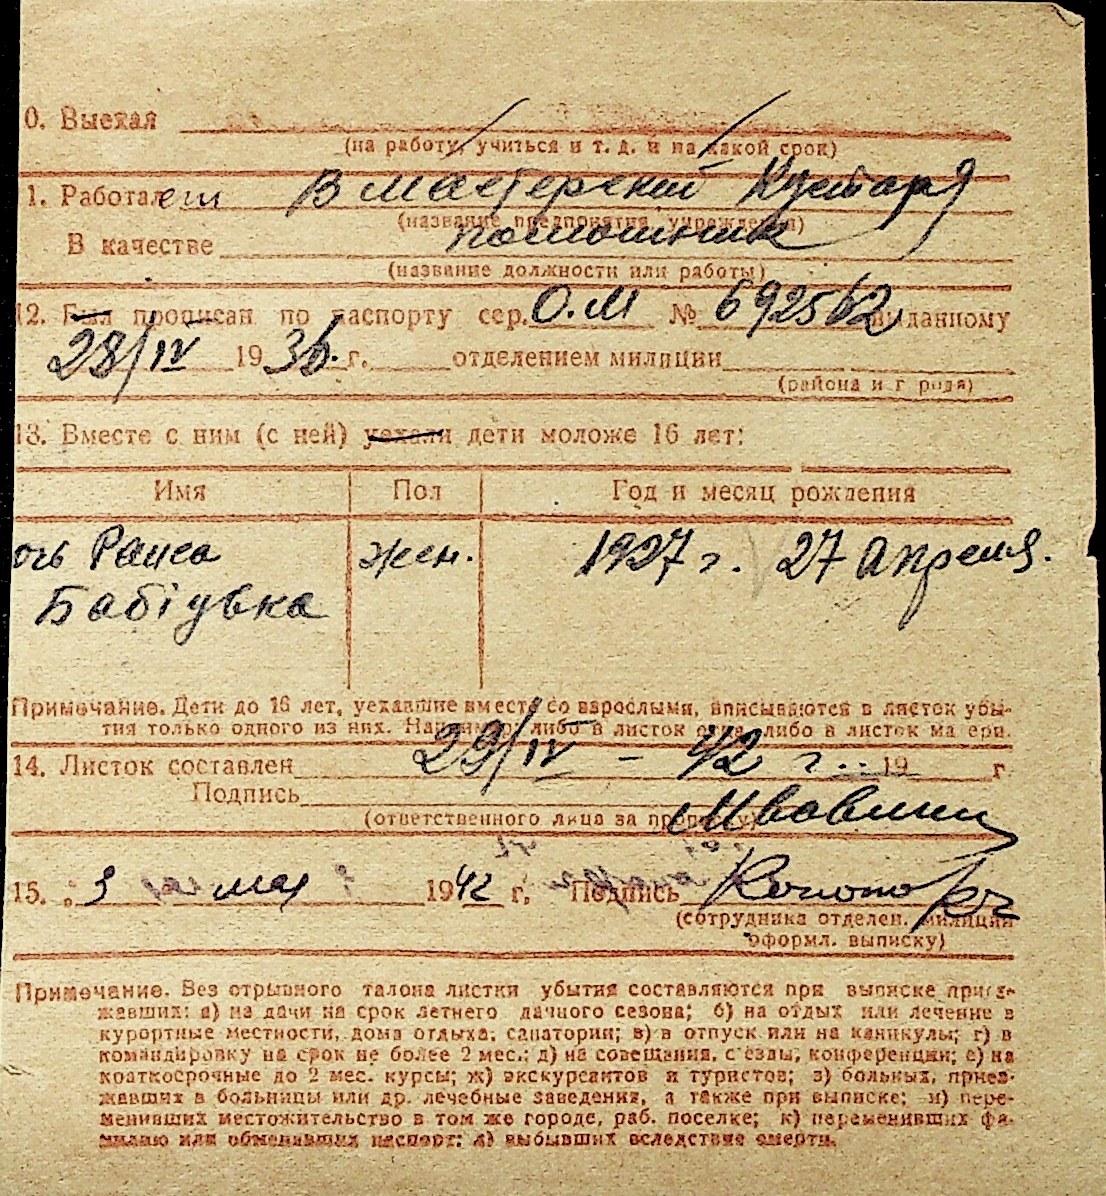 0. Выехал
(на работу, учиться и т. д. и на какой срок)
1. Работает в мастерской Кустаря
(название предпиятия, учреждения)
В качестве помошник
(название должности или работы)
12. Был прописан по паспорту сер. О.М № 692562 выданному
28/IV 1936. г. отделением милиции
(района и г рода)
13. Вместе с ним (с ней) уехали дети моложе 16 лет:
Имя Пол Год и месяц рождения
очь Раиса жен. 1927 г. 27 апреля.
Бабіцвка
Примечание. Дети до 16 лет, уехавшие вместе со взрослыми, вписываются в листок убы-
тия только одного из них. Например либо в листок отца, либо в листок ма ери.
14. Листок составлен 29/IV – 42 г. 19 г.
Подпись
(ответственного лица за прописку)
15. 3 мая 1942 г. Подпись
(сотрудника отделен. милиции
оформл. выписку)
Примечание. Без отрывного талона листки убытия составляются при выписке приез-
жавших: а) на дачи на срок летнего дачного сезона; б) на отдых или лечение в
курортные местности, дома отдыха, санатории; в) в отпуск или на каникулы; г) в
командировку на срок не более 2 мес.; д) на совещания, с'езды, конференции; е) на
краткосрочные до 2 мес. курсы; ж) экскурсантов и туристов; з) больных, приез-
жавших в больницы или др. лечебные заведения, а также при выписке; и) пере-
менивших местожительство в том же городе, раб. поселке; к) переменивших фа-
милию или обменявших паспорт; л) выбывших вследствие смерти.